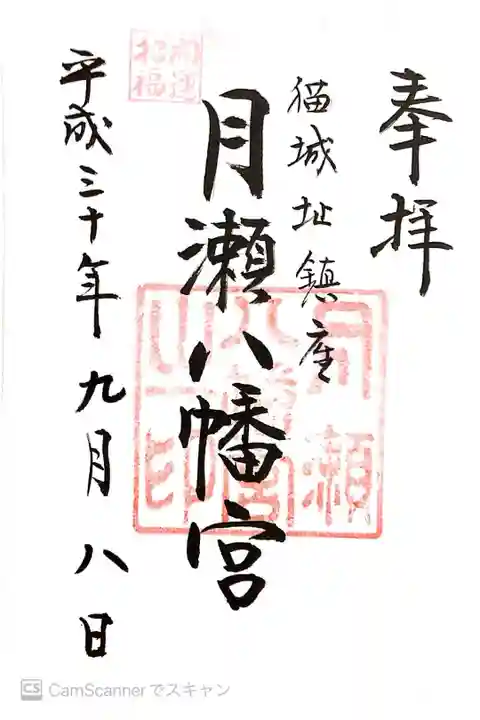 奉拝
猫城址鎮座
月瀬八幡宮
平成三十年九月八日
開運
招福
月瀬
八幡宮
之印
CS CamScannerでスキャン